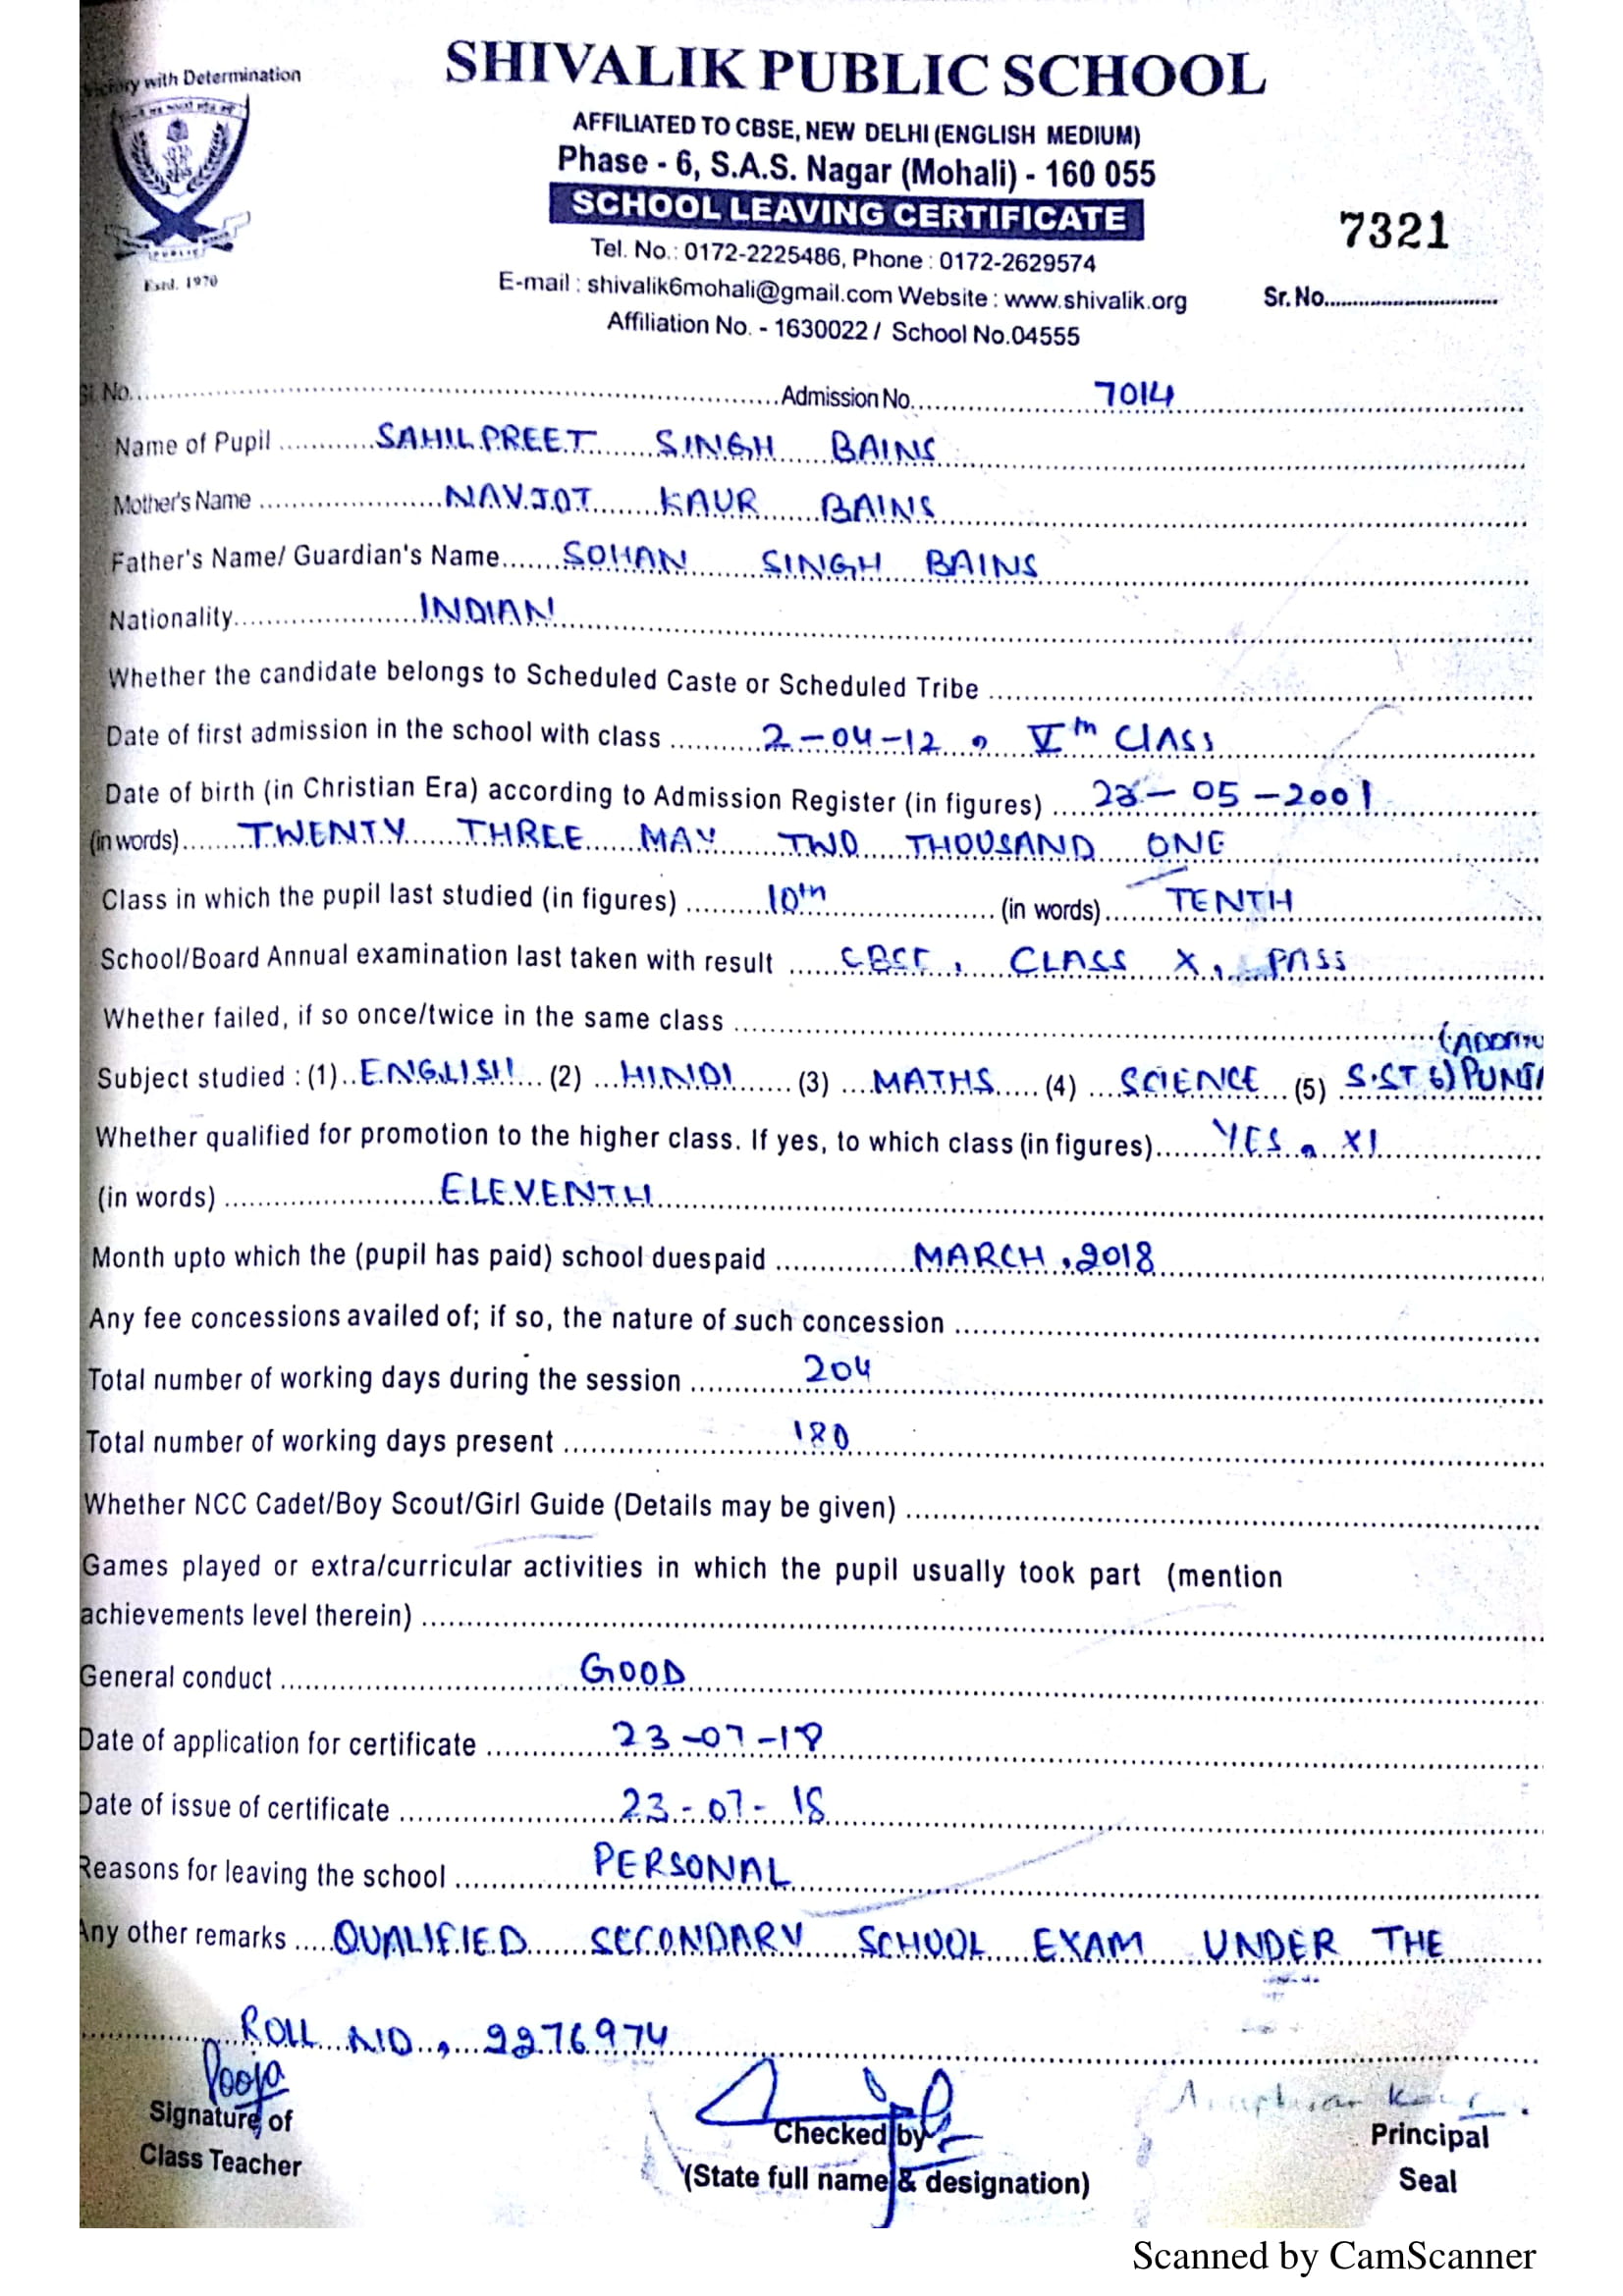 Victory with Determination
SHIVALIK PUBLIC SCHOOL
AFFILIATED TO CBSE, NEW DELHI (ENGLISH MEDIUM)
Phase - 6, S.A.S. Nagar (Mohali) - 160 055
SCHOOL LEAVING CERTIFICATE
7321
Tel. No.: 0172-2225486, Phone : 0172-2629574
E-mail : shivalik6mohali@gmail.com Website : www.shivalik.org
Sr. No.
Affiliation No. - 1630022 / School No.04555
PUBLIC
Estd. 1970
Sl. No. Admission No. 7014
Name of Pupil SAHILPREET SINGH BAINS
Mother's Name NAVJOT KAUR BAINS
Father's Name/ Guardian's Name SOHAN SINGH BAINS
Nationality INDIAN
Whether the candidate belongs to Scheduled Caste or Scheduled Tribe
Date of first admission in the school with class 2-04-12, Vth Class
Date of birth (in Christian Era) according to Admission Register (in figures) 23-05-2001
(in words) TWENTY THREE MAY TWO THOUSAND ONE
Class in which the pupil last studied (in figures) 10th (in words) TENTH
School/Board Annual examination last taken with result CBSE, CLASS X, PASS
Whether failed, if so once/twice in the same class
Subject studied : (1) ENGLISH (2) HINDI (3) MATHS (4) SCIENCE (5) S.ST 6)
Whether qualified for promotion to the higher class. If yes, to which class (in figures) YES, XI
(in words) ELEVENTH
Month upto which the (pupil has paid) school duespaid MARCH, 2018
Any fee concessions availed of; if so, the nature of such concession
Total number of working days during the session 204
Total number of working days present 180
Whether NCC Cadet/Boy Scout/Girl Guide (Details may be given)
Games played or extra/curricular activities in which the pupil usually took part (mention
achievements level therein)
General conduct GOOD
Date of application for certificate 23-07-18
Date of issue of certificate 23-07-18
Reasons for leaving the school PERSONAL
Any other remarks QUALIFIED SECONDARY SCHOOL EXAM UNDER THE
ROLL NO, 2276974
Pooja
Signature of
Class Teacher
Checked by
(State full name & designation)
Kaur
Principal
Seal
Scanned by CamScanner